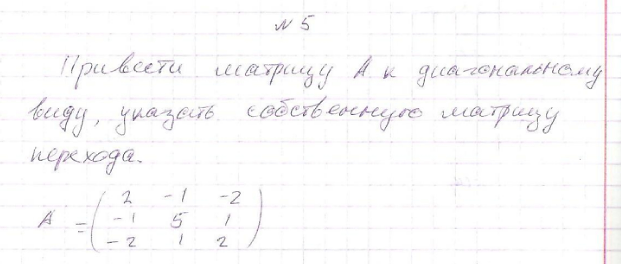 № 5
Привести матрицу А к диагональному
виду, указать собственную матрицу
перехода.
A = ( 2 -1 -2
-1 5 1
-2 1 2 )